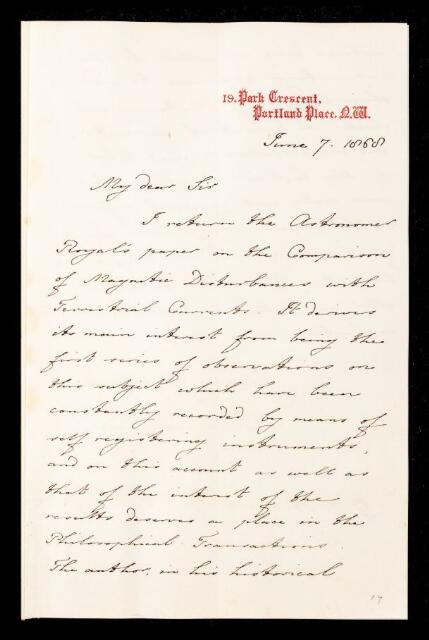 19. Park Crescent,
Portland Place. N.W.
June 7. 1868
My dear Sir
I return the Astronomer
Royal's paper on the Comparison
of Magnetic Disturbances with
Terrestrial Currents. It derives
its main interest from being the
first series of observations on
this subject which have been
constantly recorded by means of
self registering instruments,
and on this account as well as
that of the interest of the
results deserves a place in the
Philosophical Transactions.
The author, in his historical